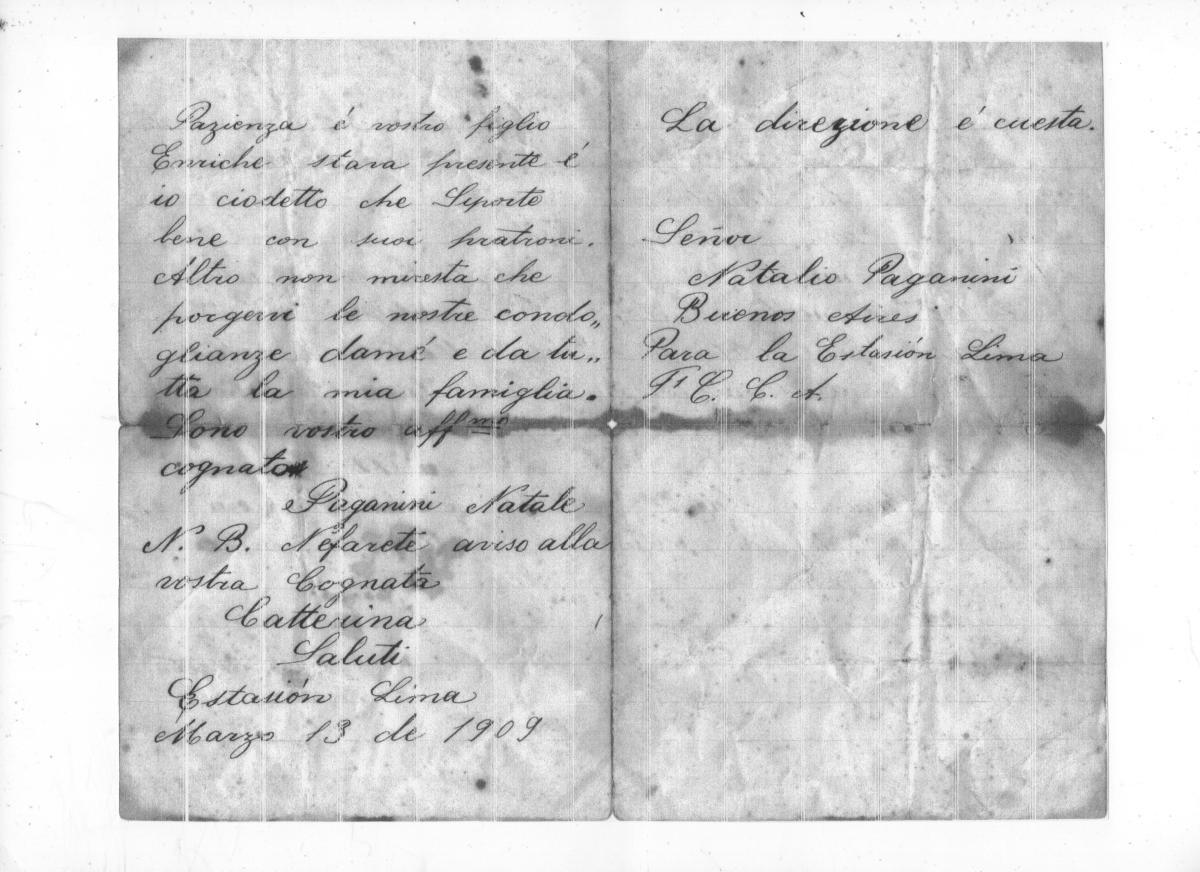 Pazienza é vostro figlio
Enriche stava presente é
io ciodetto che Siporte
bene con suoi pratroni.
Altro non miresta che
porgervi le nostre condo„
glianze damé e da tu„
tta la mia famiglia.
Sono vostro aff mo
cognato
Paganini Natale
N. B. Nefarete aviso alla
vostra Cognata
Catterina
Saluti
Estasión Lima
Marzo 13 de 1909
La direzione é cuesta.
Señor
Natalio Paganini
Buenos Aires
Para la Estasión Lima
F. C. C. A.